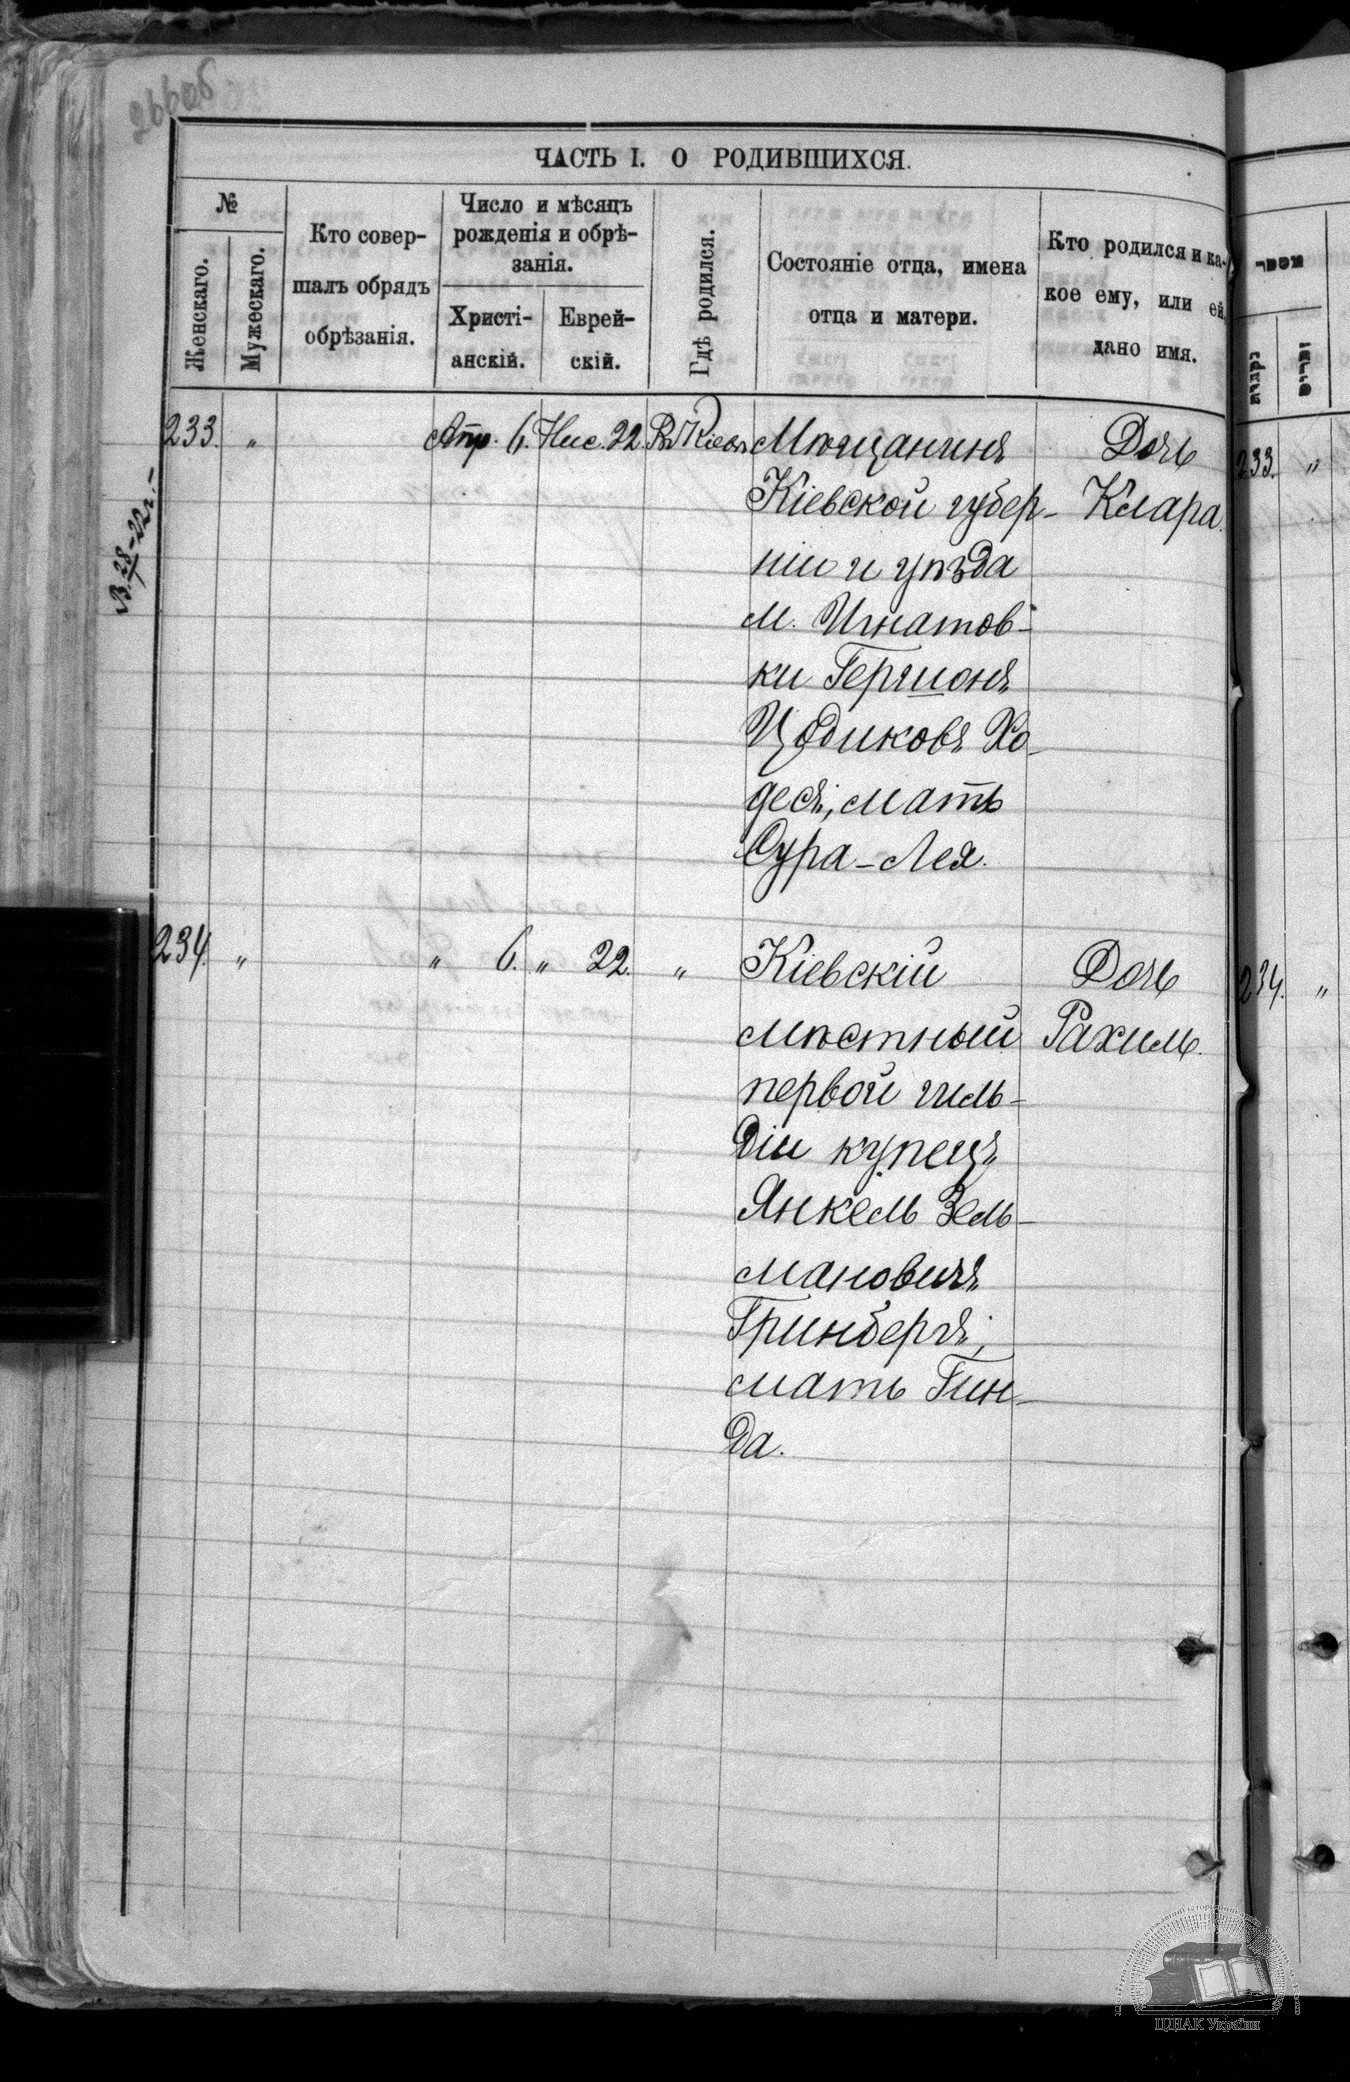 266об
ЧАСТЬ I. О РОДИВШИХСЯ.
№
Женскаго.
Мужескаго.
Кто совер-
шалъ обрядъ
обрѣзанія.
Число и мѣсяцъ
рожденія и обрѣ-
занія.
Христі-
анскій.
Еврей-
скій.
Гдѣ родился.
Состояніе отца, имена
отца и матери.
Кто родился и ка-
кое ему, или ей,
дано имя.
233. „ Апр. 6. Нис. 22. Въ Кіевѣ Мѣщанинъ Дочь
Кіевской губер- Клара.
ніи и уѣзда
м. Игнатов-
ки Гершонъ
Цодиковъ Хо-
десъ, мать
Сура-Лея.
234. „ „ 6. „ 22. „ Кіевскій Дочь
мѣстный Рахиль.
первой гиль-
діи купецъ
Янкель Зель-
мановичъ
Гринбергъ;
мать Гин-
да.
נקבות
זכרים
233. „
234. „
ЦДІАК України